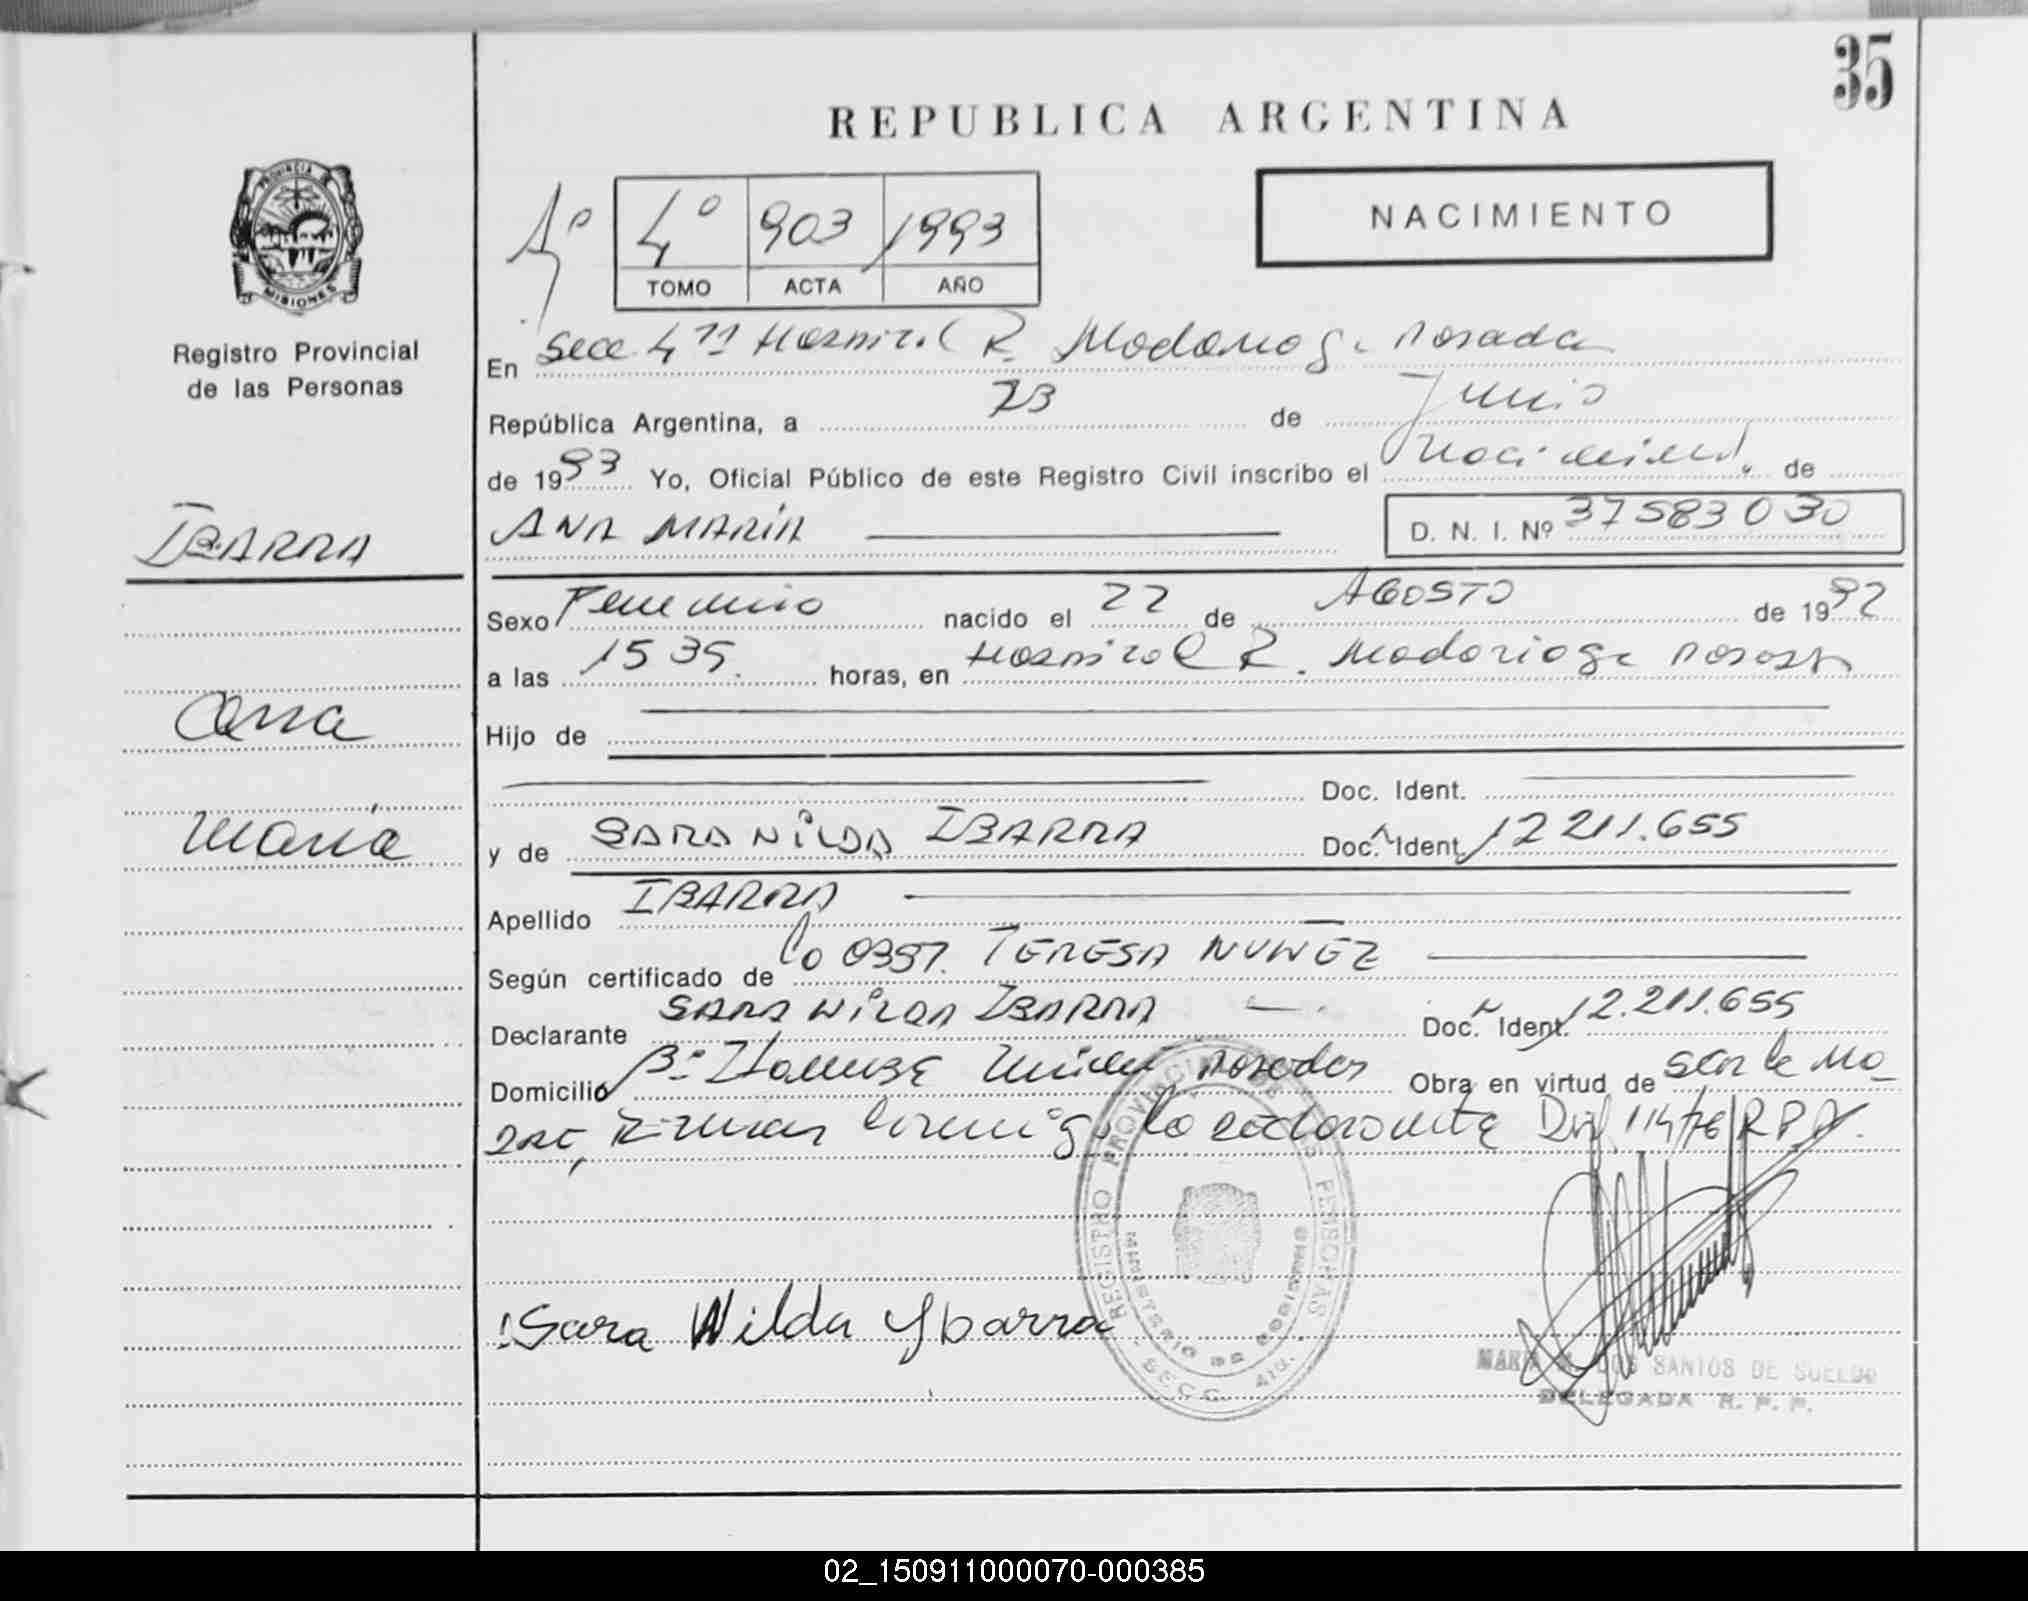 35
REPUBLICA ARGENTINA
NACIMIENTO
PROVINCIA DE
MISIONES
Registro Provincial
de las Personas
4º 903 1993
TOMO ACTA AÑO
En Secc 4ta Hospital R. Madariaga Posadas
República Argentina, a 23 de Junio
de 1993 Yo, Oficial Público de este Registro Civil inscribo el Nacimiento de
IBARRA
ANA MARIA D. N. I. Nº 37583030
Sexo Femenino nacido el 22 de AGOSTO de 1992
a las 15 35 horas, en Hospital R. Madariaga Posadas
Ana
Hijo de
Doc. Ident.
Maria
y de SARA WILDA IBARRA Doc. Ident. 12 211.655
Apellido IBARRA
Según certificado de TERESA NUÑEZ
Declarante SARA WILDA IBARRA Doc. Ident. 12.211.655
Domicilio Bº Posadas Obra en virtud de ser la ma
dre, firman la declarante
REGISTRO PROVINCIAL DE LAS PERSONAS
MINISTERIO DE GOBIERNO
SECC. 4TA.
Sara Wilda Ybarra
MARIA DOS SANTOS DE SUELDO
DELEGADA R. P. P.
02_150911000070-000385